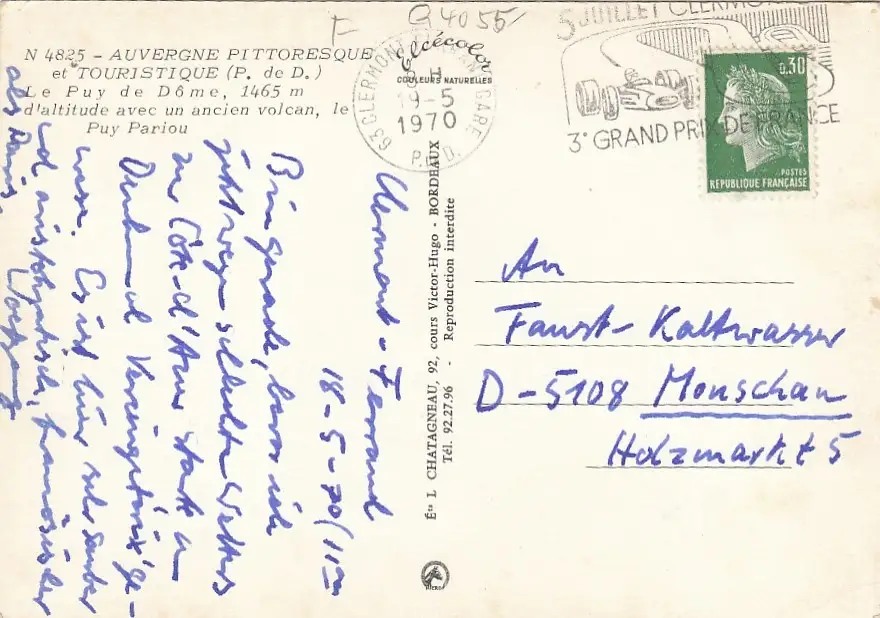 F
G4055
N 4825 - AUVERGNE PITTORESQUE
et TOURISTIQUE (P. de D.)
Le Puy de Dôme, 1465 m
d'altitude avec un ancien volcan, le
Puy Pariou
Elcécolor
COULEURS NATURELLES
63 CLERMONT GARE
19-5
1970
P. D.
5 JUILLET CLERMO
3e GRAND PRIX DE FRANCE
0,30
POSTES
REPUBLIQUE FRANÇAISE
Ets L CHATAGNEAU, 92, cours Victor-Hugo - BORDEAUX
Tél. 92.27.96 - Reproduction interdite
Clermont-Ferrand
18-5-70/11
Bin gerade, bevor ich
jetzt wegen schlechten Wetters
zur Côte d'Azur statt
Denkmal Vercingetorix ge-
wesen. Es ist hier sehr sauber
und aristokratisch, französischer
als Paris.
Wolfgang
An
Faust-Kaltwasser
D-5108 Monschau
Holzmarkt 5